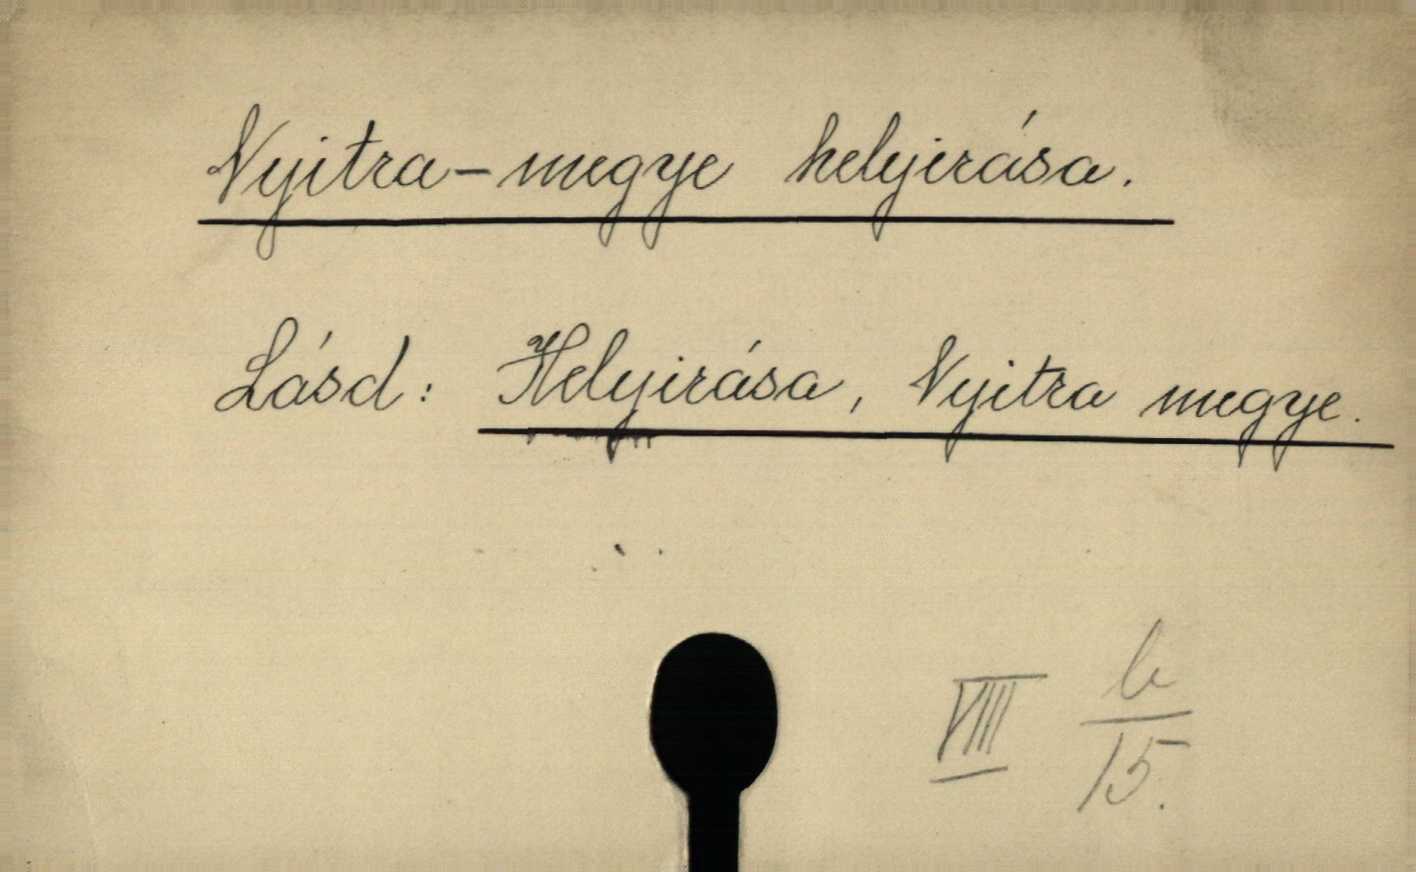 Nyitra-megye helyirása.
Lásd: Helyirása, Nyitra megye.
VIII b/15.